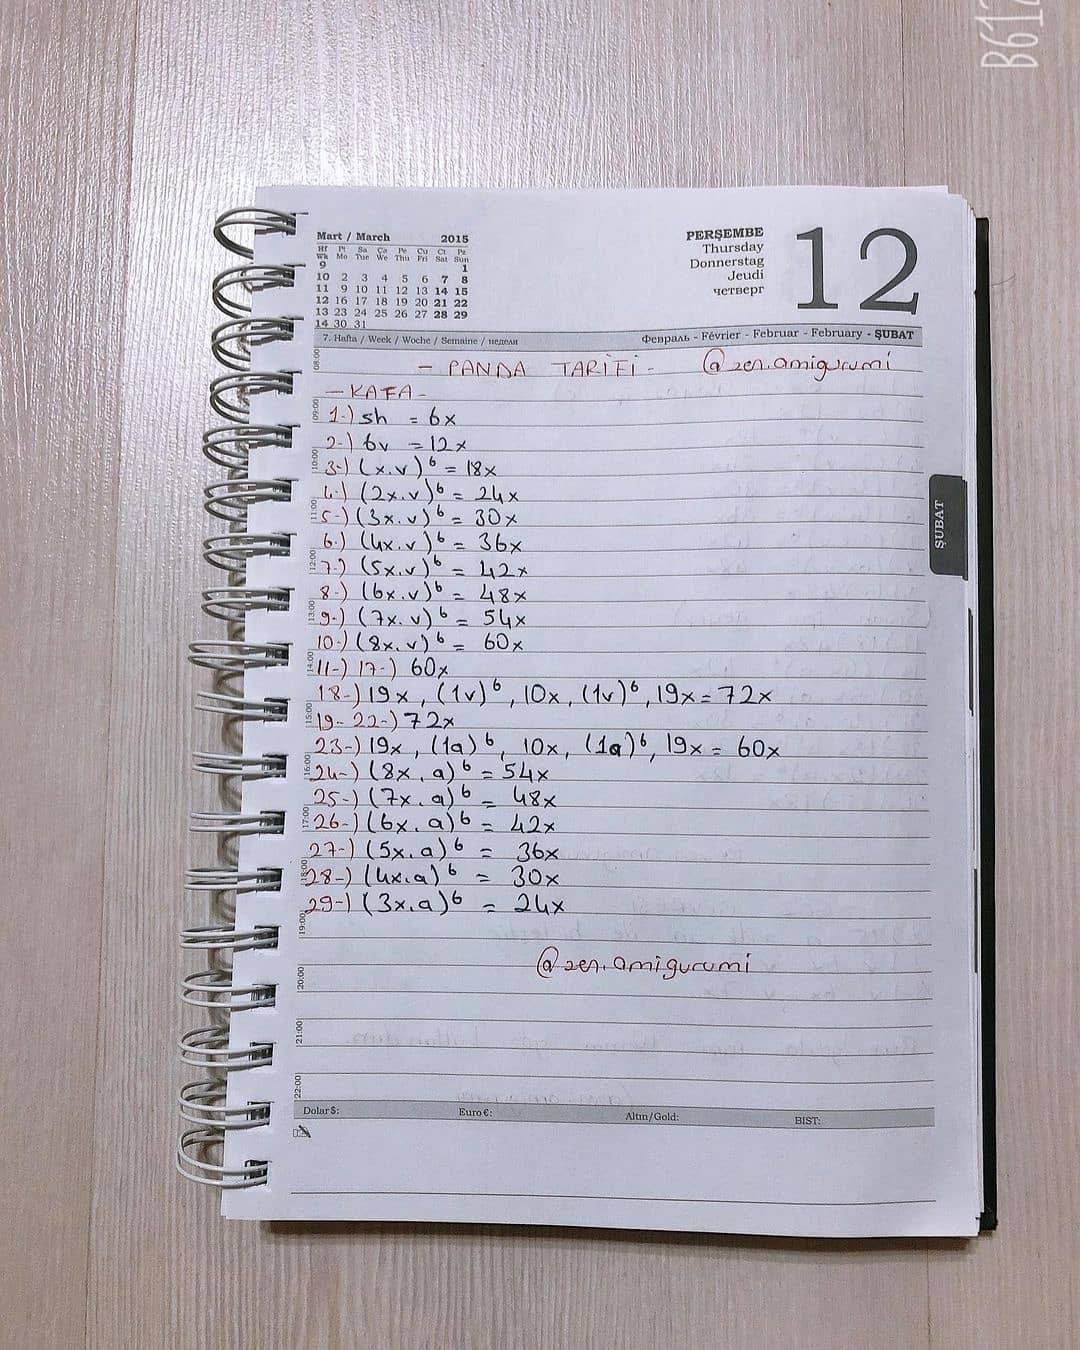 B612
Mart / March 2015
Hf Pt Sa Ça Pe Cu Ct Pz
Wk Mo Tue We Thu Fri Sat Sun
9 1
10 2 3 4 5 6 7 8
11 9 10 11 12 13 14 15
12 16 17 18 19 20 21 22
13 23 24 25 26 27 28 29
14 30 31
PERŞEMBE
Thursday
Donnerstag
Jeudi
четверг
12
7. Hafta / Week / Woche / Semaine / недели
Февраль - Février - Februar - February - ŞUBAT
- PANDA TARİFİ - @zen.amigurumi
- KAFA -
1-) sh = 6x
2-) 6v = 12x
3-) (x.v)⁶ = 18x
4-) (2x.v)⁶ = 24x
5-) (3x.v)⁶ = 30x
6-) (4x.v)⁶ = 36x
7-) (5x.v)⁶ = 42x
8-) (6x.v)⁶ = 48x
9-) (7x.v)⁶ = 54x
10-) (8x.v)⁶ = 60x
11-) 17-) 60x
18-) 19x, (1v)⁶, 10x, (1v)⁶, 19x = 72x
19- 22-) 72x
23-) 19x, (1a)⁶, 10x, (1a)⁶, 19x = 60x
24-) (8x.a)⁶ = 54x
25-) (7x.a)⁶ = 48x
26-) (6x.a)⁶ = 42x
27-) (5x.a)⁶ = 36x
28-) (4x.a)⁶ = 30x
29-) (3x.a)⁶ = 24x
@zen.amigurumi
08:00
09:00
10:00
11:00
12:00
13:00
14:00
15:00
16:00
17:00
18:00
19:00
20:00
21:00
22:00
ŞUBAT
Dolar $: Euro €: Altın/Gold: BIST: